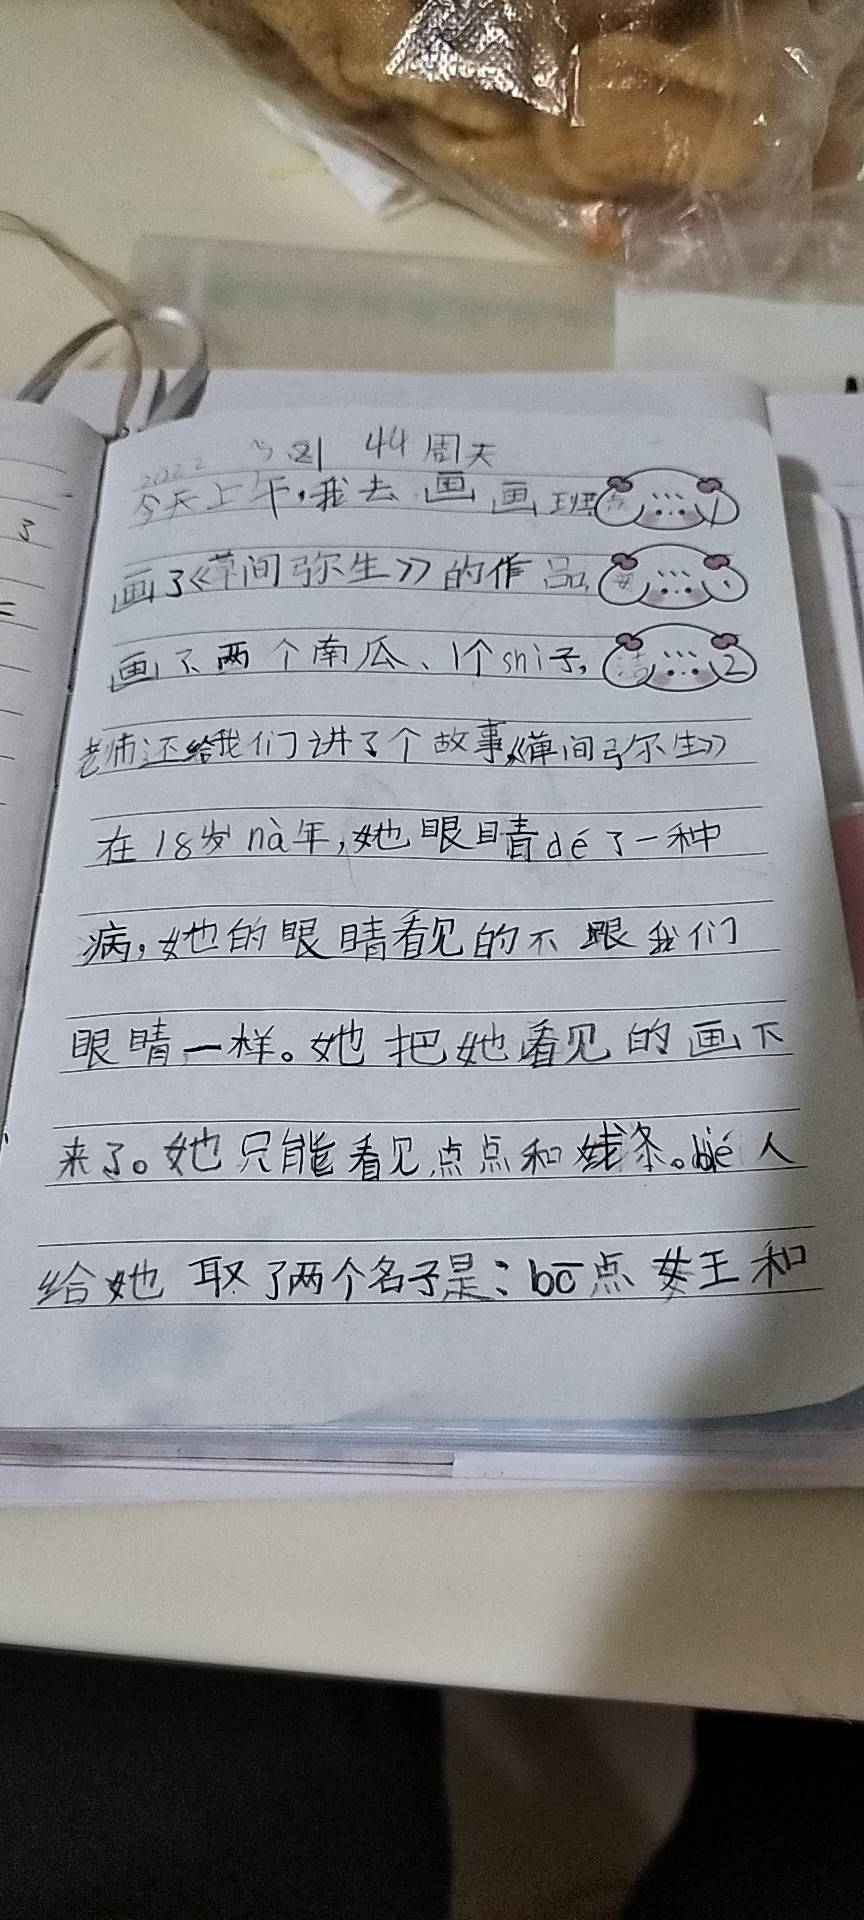 2022 44 周天
今天上午,我去画画班
画了《草间弥生》的作品,
画了两个南瓜、1个shi子, 2
老师还给我们讲了个故事《草间弥生》
在18岁nà年,她眼睛dé了一种
病,她的眼睛看见的不跟我们
眼睛一样。她把她看见的画下
来了。她只能看见点点和线条。bié人
给她取了两个名子是:bō点女王和